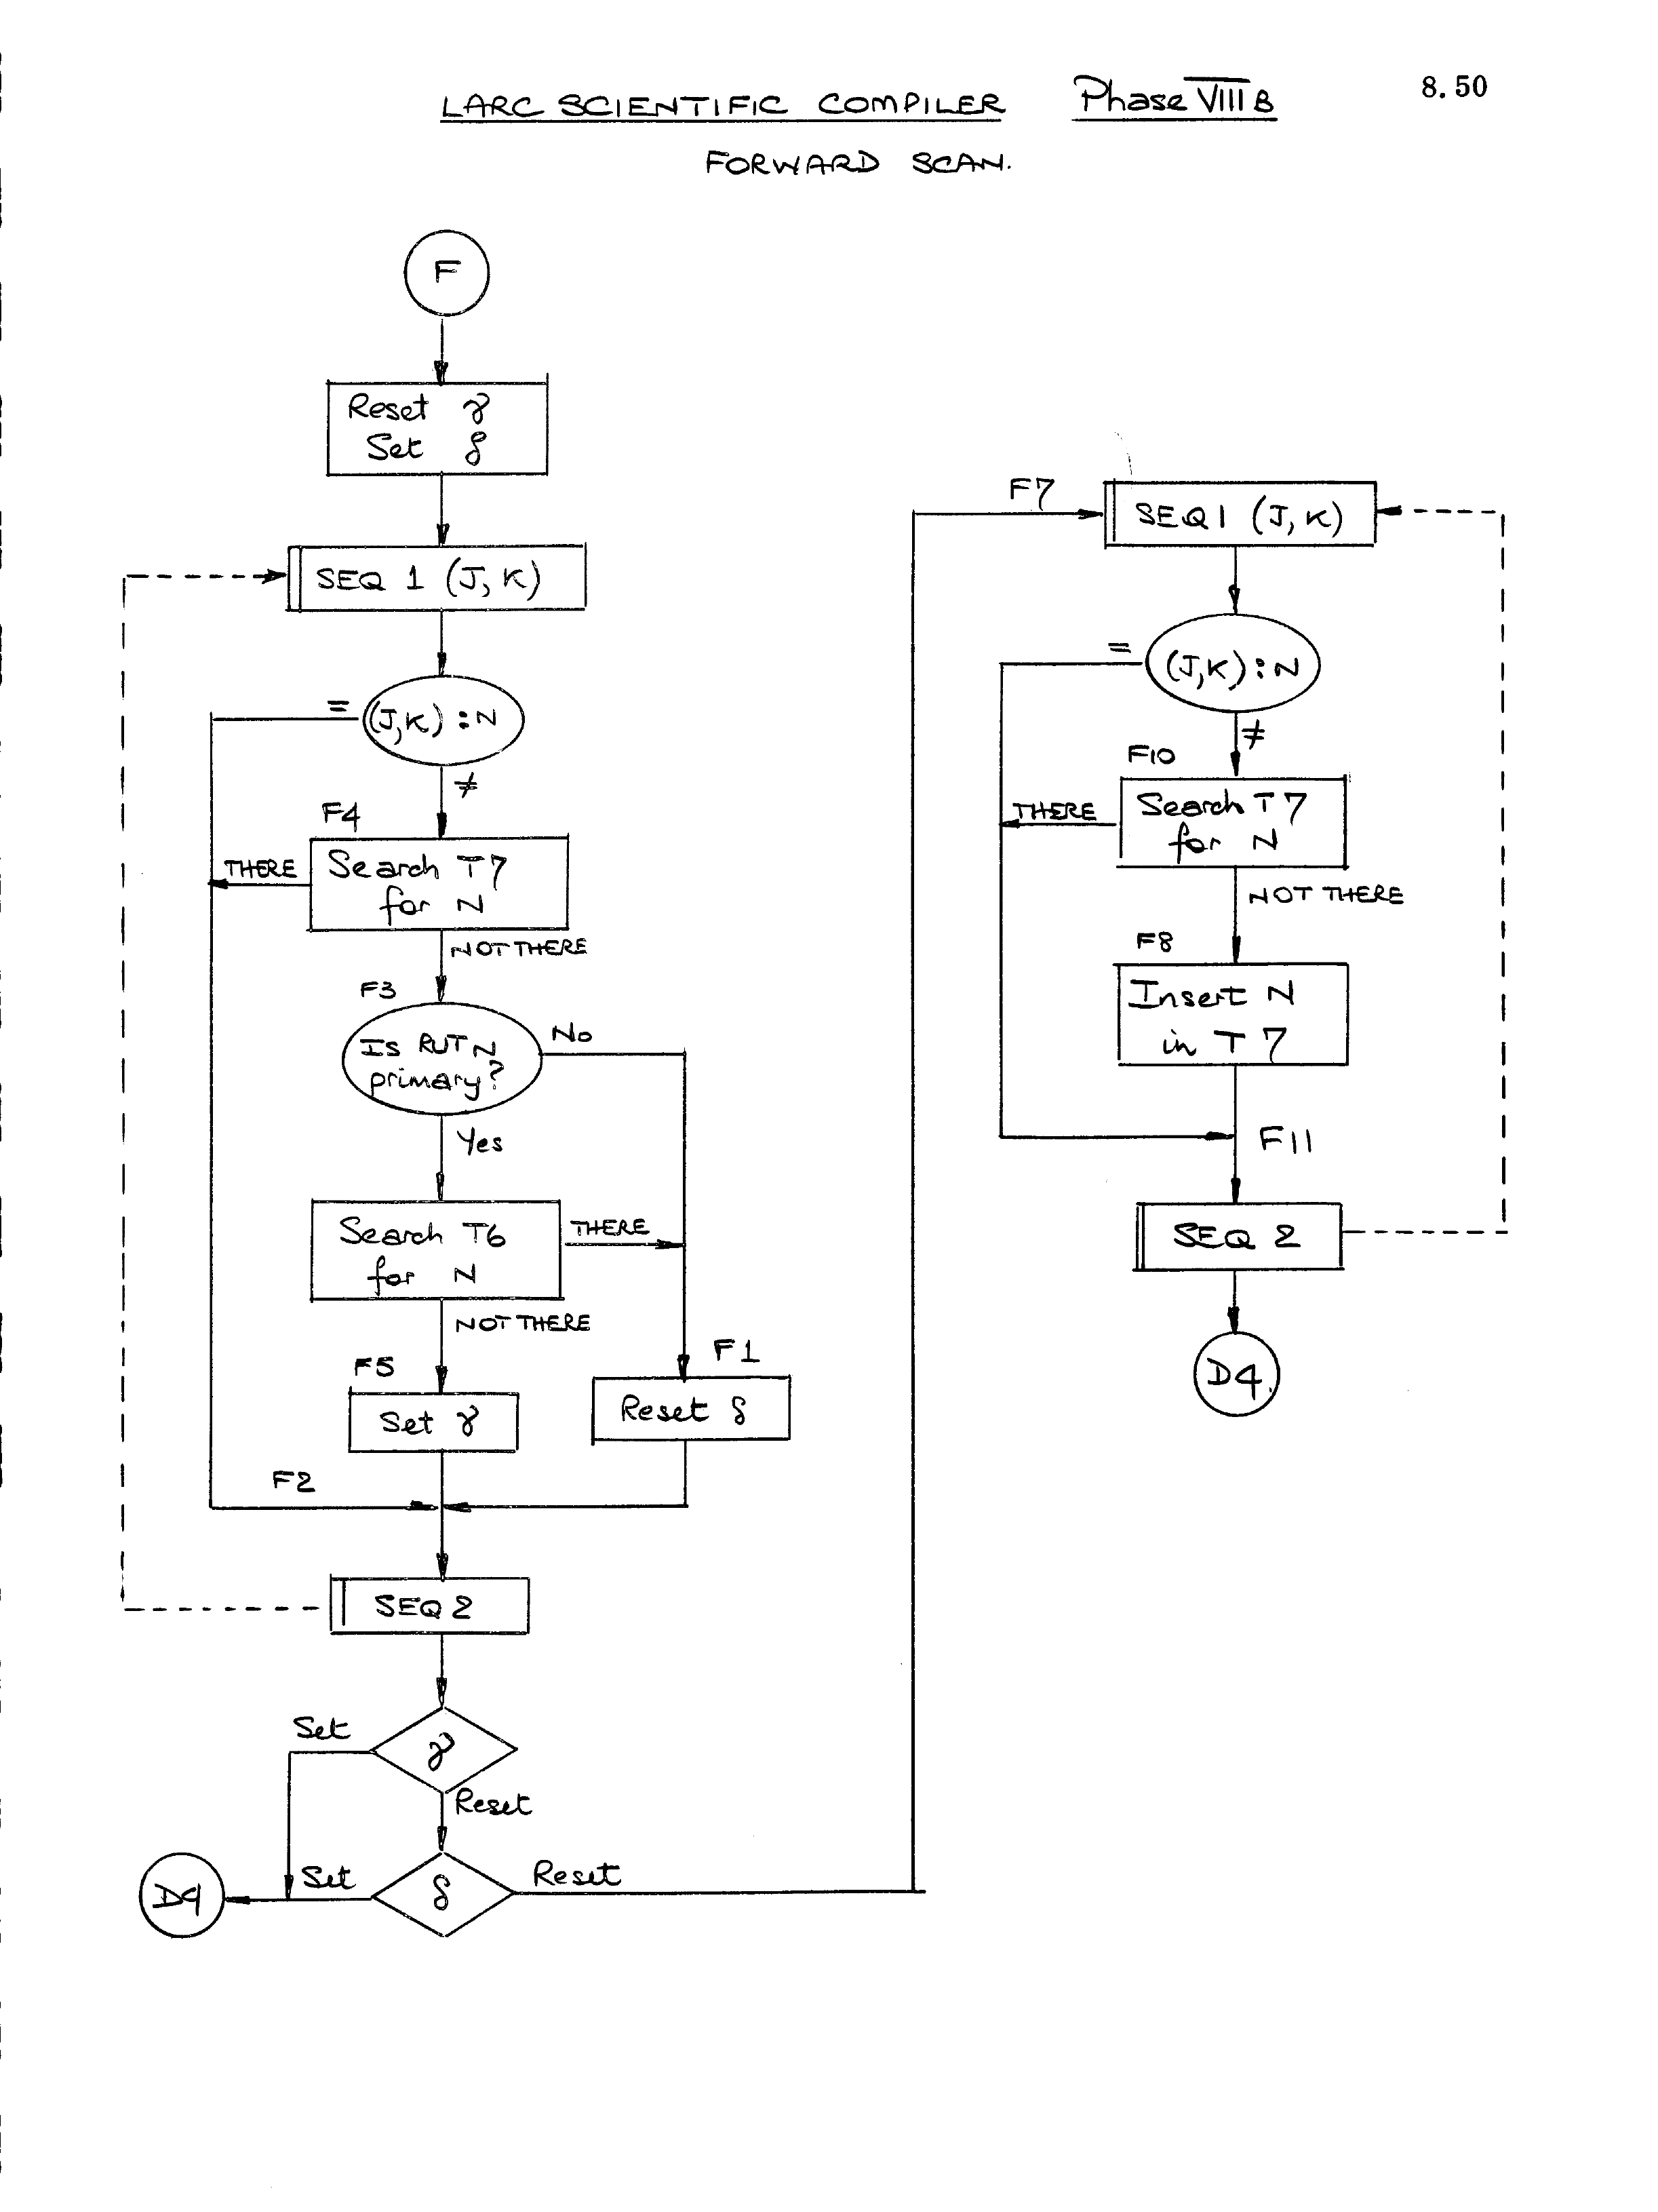 LARC SCIENTIFIC COMPILER Phase VIII B 8.50
FORWARD SCAN.
F
Reset γ
Set δ
SEQ 1 (J, K)
=
(J,K) : N
≠
F4
Search T7
for N
THERE
NOT THERE
F3
Is RUT N
primary?
No
Yes
Search T6
for N
THERE
NOT THERE
F5
Set γ
F1
Reset δ
F2
SEQ 2
Set
γ
Reset
Set
δ
Reset
D9
F7
SEQ1 (J, K)
=
(J,K) : N
≠
F10
Search T7
for N
THERE
NOT THERE
F8
Insert N
in T7
F11
SEQ 2